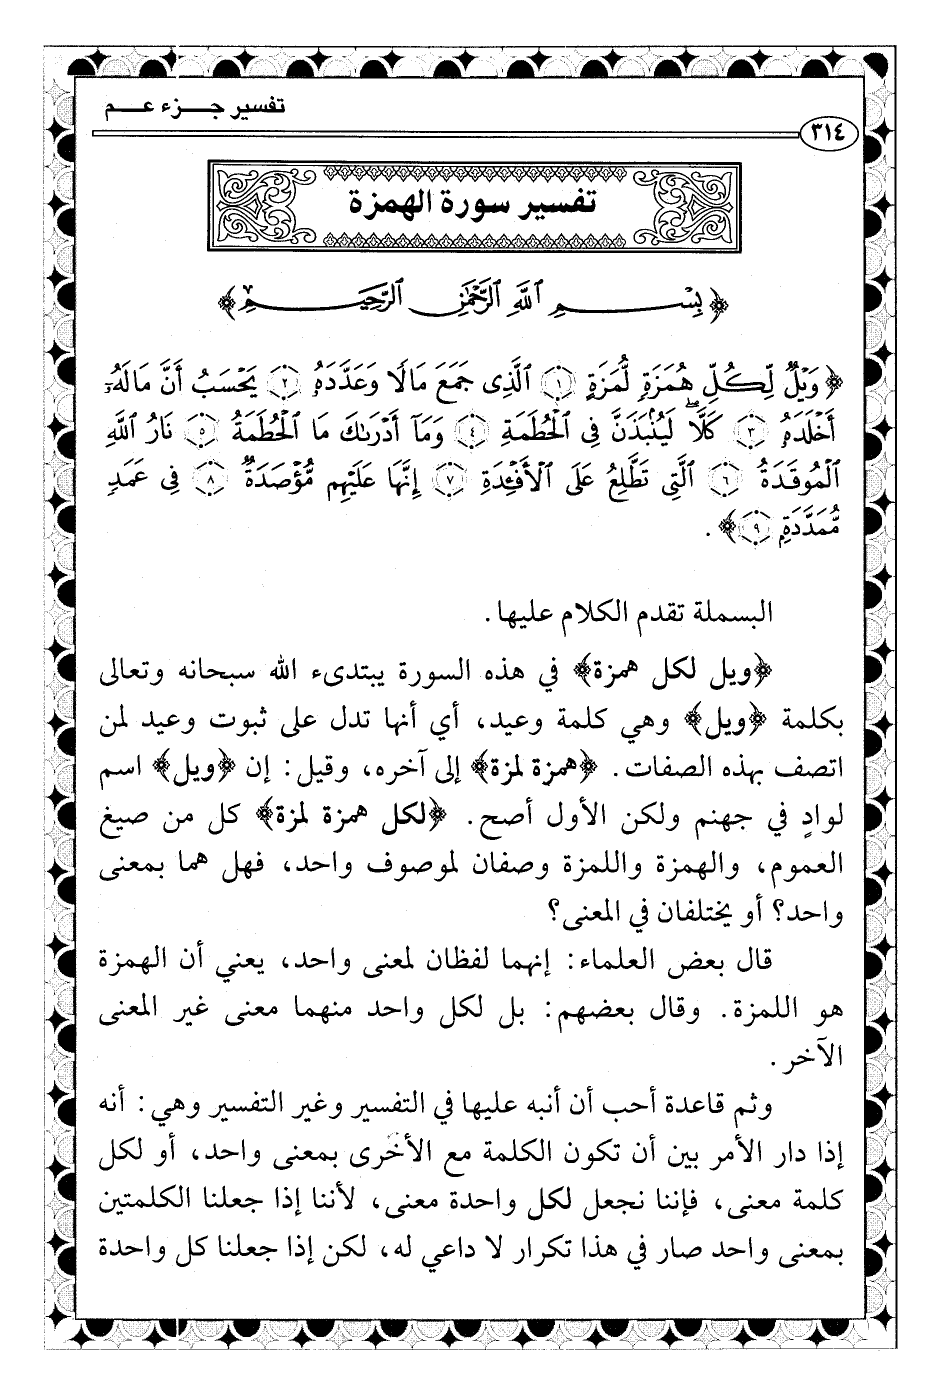 تفسير جزء عم
٣١٤
تفسير سورة الهمزة
﴿بِسْمِ ٱللَّهِ ٱلرَّحْمَٰنِ ٱلرَّحِيمِ﴾
﴿وَيْلٌ لِّكُلِّ هُمَزَةٍ لُّمَزَةٍ ١ ٱلَّذِى جَمَعَ مَالًا وَعَدَّدَهُۥ ٢ يَحْسَبُ أَنَّ مَالَهُۥٓ
أَخْلَدَهُۥ ٣ كَلَّا ۖ لَيُنۢبَذَنَّ فِى ٱلْحُطَمَةِ ٤ وَمَآ أَدْرَىٰكَ مَا ٱلْحُطَمَةُ ٥ نَارُ ٱللَّهِ
ٱلْمُوقَدَةُ ٦ ٱلَّتِى تَطَّلِعُ عَلَى ٱلْأَفْـِٔدَةِ ٧ إِنَّهَا عَلَيْهِم مُّؤْصَدَةٌ ٨ فِى عَمَدٍ
مُّمَدَّدَةٍۭ ٩﴾.
البسملة تقدم الكلام عليها.
﴿ويل لكل همزة﴾ في هذه السورة يبتدىء الله سبحانه وتعالى
بكلمة ﴿ويل﴾ وهي كلمة وعيد، أي أنها تدل على ثبوت وعيد لمن
اتصف بهذه الصفات. ﴿همزة لمزة﴾ إلى آخره، وقيل: إن ﴿ويل﴾ اسم
لوادٍ في جهنم ولكن الأول أصح. ﴿لكل همزة لمزة﴾ كل من صيغ
العموم، والهمزة واللمزة وصفان لموصوف واحد، فهل هما بمعنى
واحد؟ أو يختلفان في المعنى؟
قال بعض العلماء: إنهما لفظان لمعنى واحد، يعني أن الهمزة
هو اللمزة. وقال بعضهم: بل لكل واحد منهما معنى غير المعنى
الآخر.
وثم قاعدة أحب أن أنبه عليها في التفسير وغير التفسير وهي: أنه
إذا دار الأمر بين أن تكون الكلمة مع الأخرى بمعنى واحد، أو لكل
كلمة معنى، فإننا نجعل لكل واحدة معنى، لأننا إذا جعلنا الكلمتين
بمعنى واحد صار في هذا تكرار لا داعي له، لكن إذا جعلنا كل واحدة